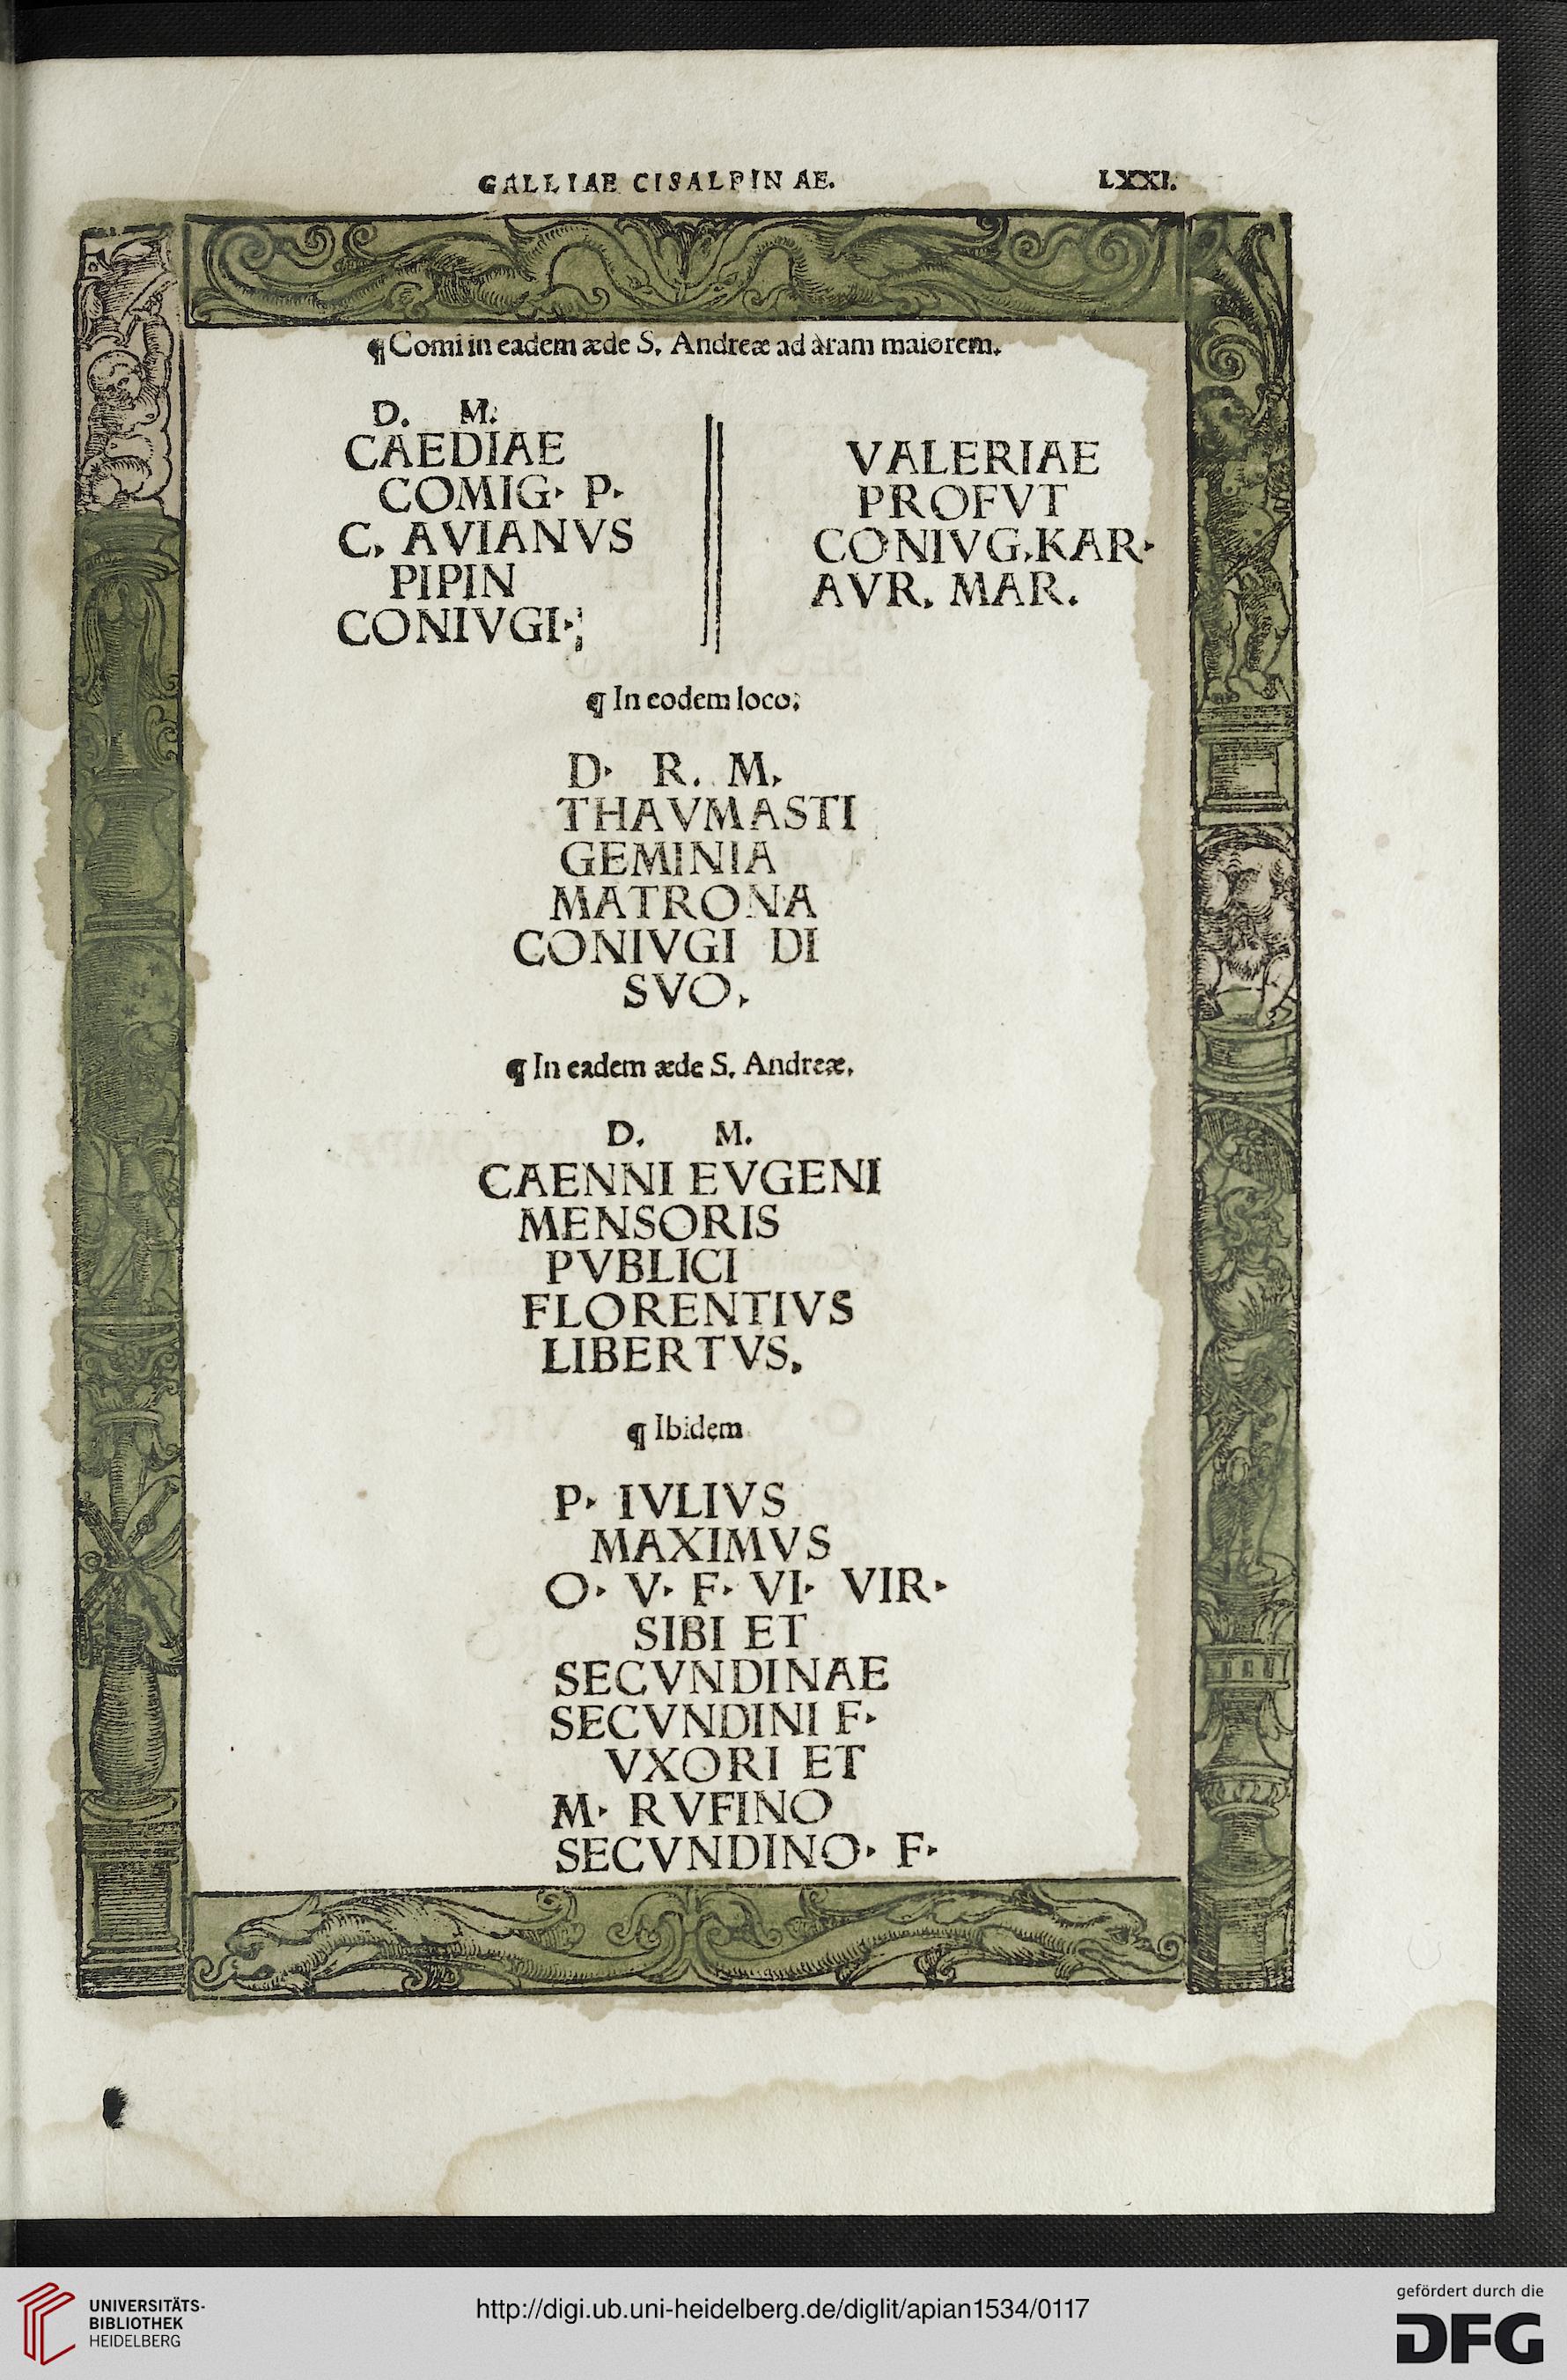 GALLIAE CISALPINAE. LXXI.
¶ Comi in eadem æde S. Andreæ ad àram maiorem.
D. M.
CAEDIAE
COMIG· P·
C. AVIANVS
PIPIN
CONIVGI·;
VALERIAE
PROFVT
CONIVG.KAR·
AVR. MAR.
¶ In eodem loco;
D· R. M.
THAVMASTI
GEMINIA
MATRONA
CONIVGI DI
SVO.
¶ In eadem æde S. Andreæ.
D. M.
CAENNI EVGENI
MENSORIS
PVBLICI
FLORENTIVS
LIBERTVS.
¶ Ibidem
P· IVLIVS
MAXIMVS
O· V· F· VI· VIR·
SIBI ET
SECVNDINAE
SECVNDINI F·
VXORI ET
M· RVFINO
SECVNDINO· F·
UNIVERSITÄTS-
BIBLIOTHEK
HEIDELBERG
http://digi.ub.uni-heidelberg.de/diglit/apian1534/0117
gefördert durch die
DFG